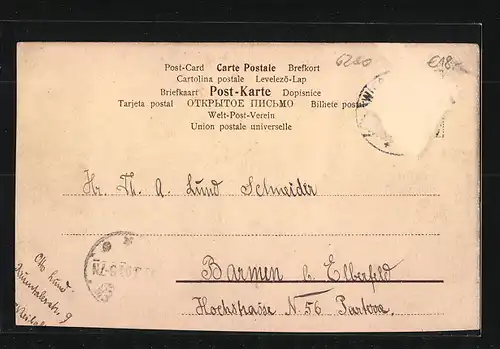 6200 €18.-
Post-Card Carte Postale Brefkort
Cartolina postale Levelező-Lap
Briefkaart Post-Karte Dopisnice
Tarjeta postal ОТКРЫТОЕ ПИСЬМО Bilhete postal
Welt-Post-Verein
Union postale universelle
Hr. Th. A. Lund Schneider
Barmen b. Elberfeld
Hochstrasse N. 56 Parterre.
Otto Lund
9